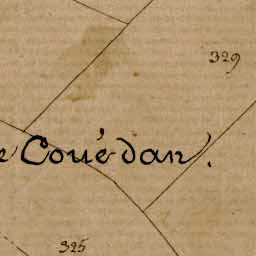 329
Couédan.
325